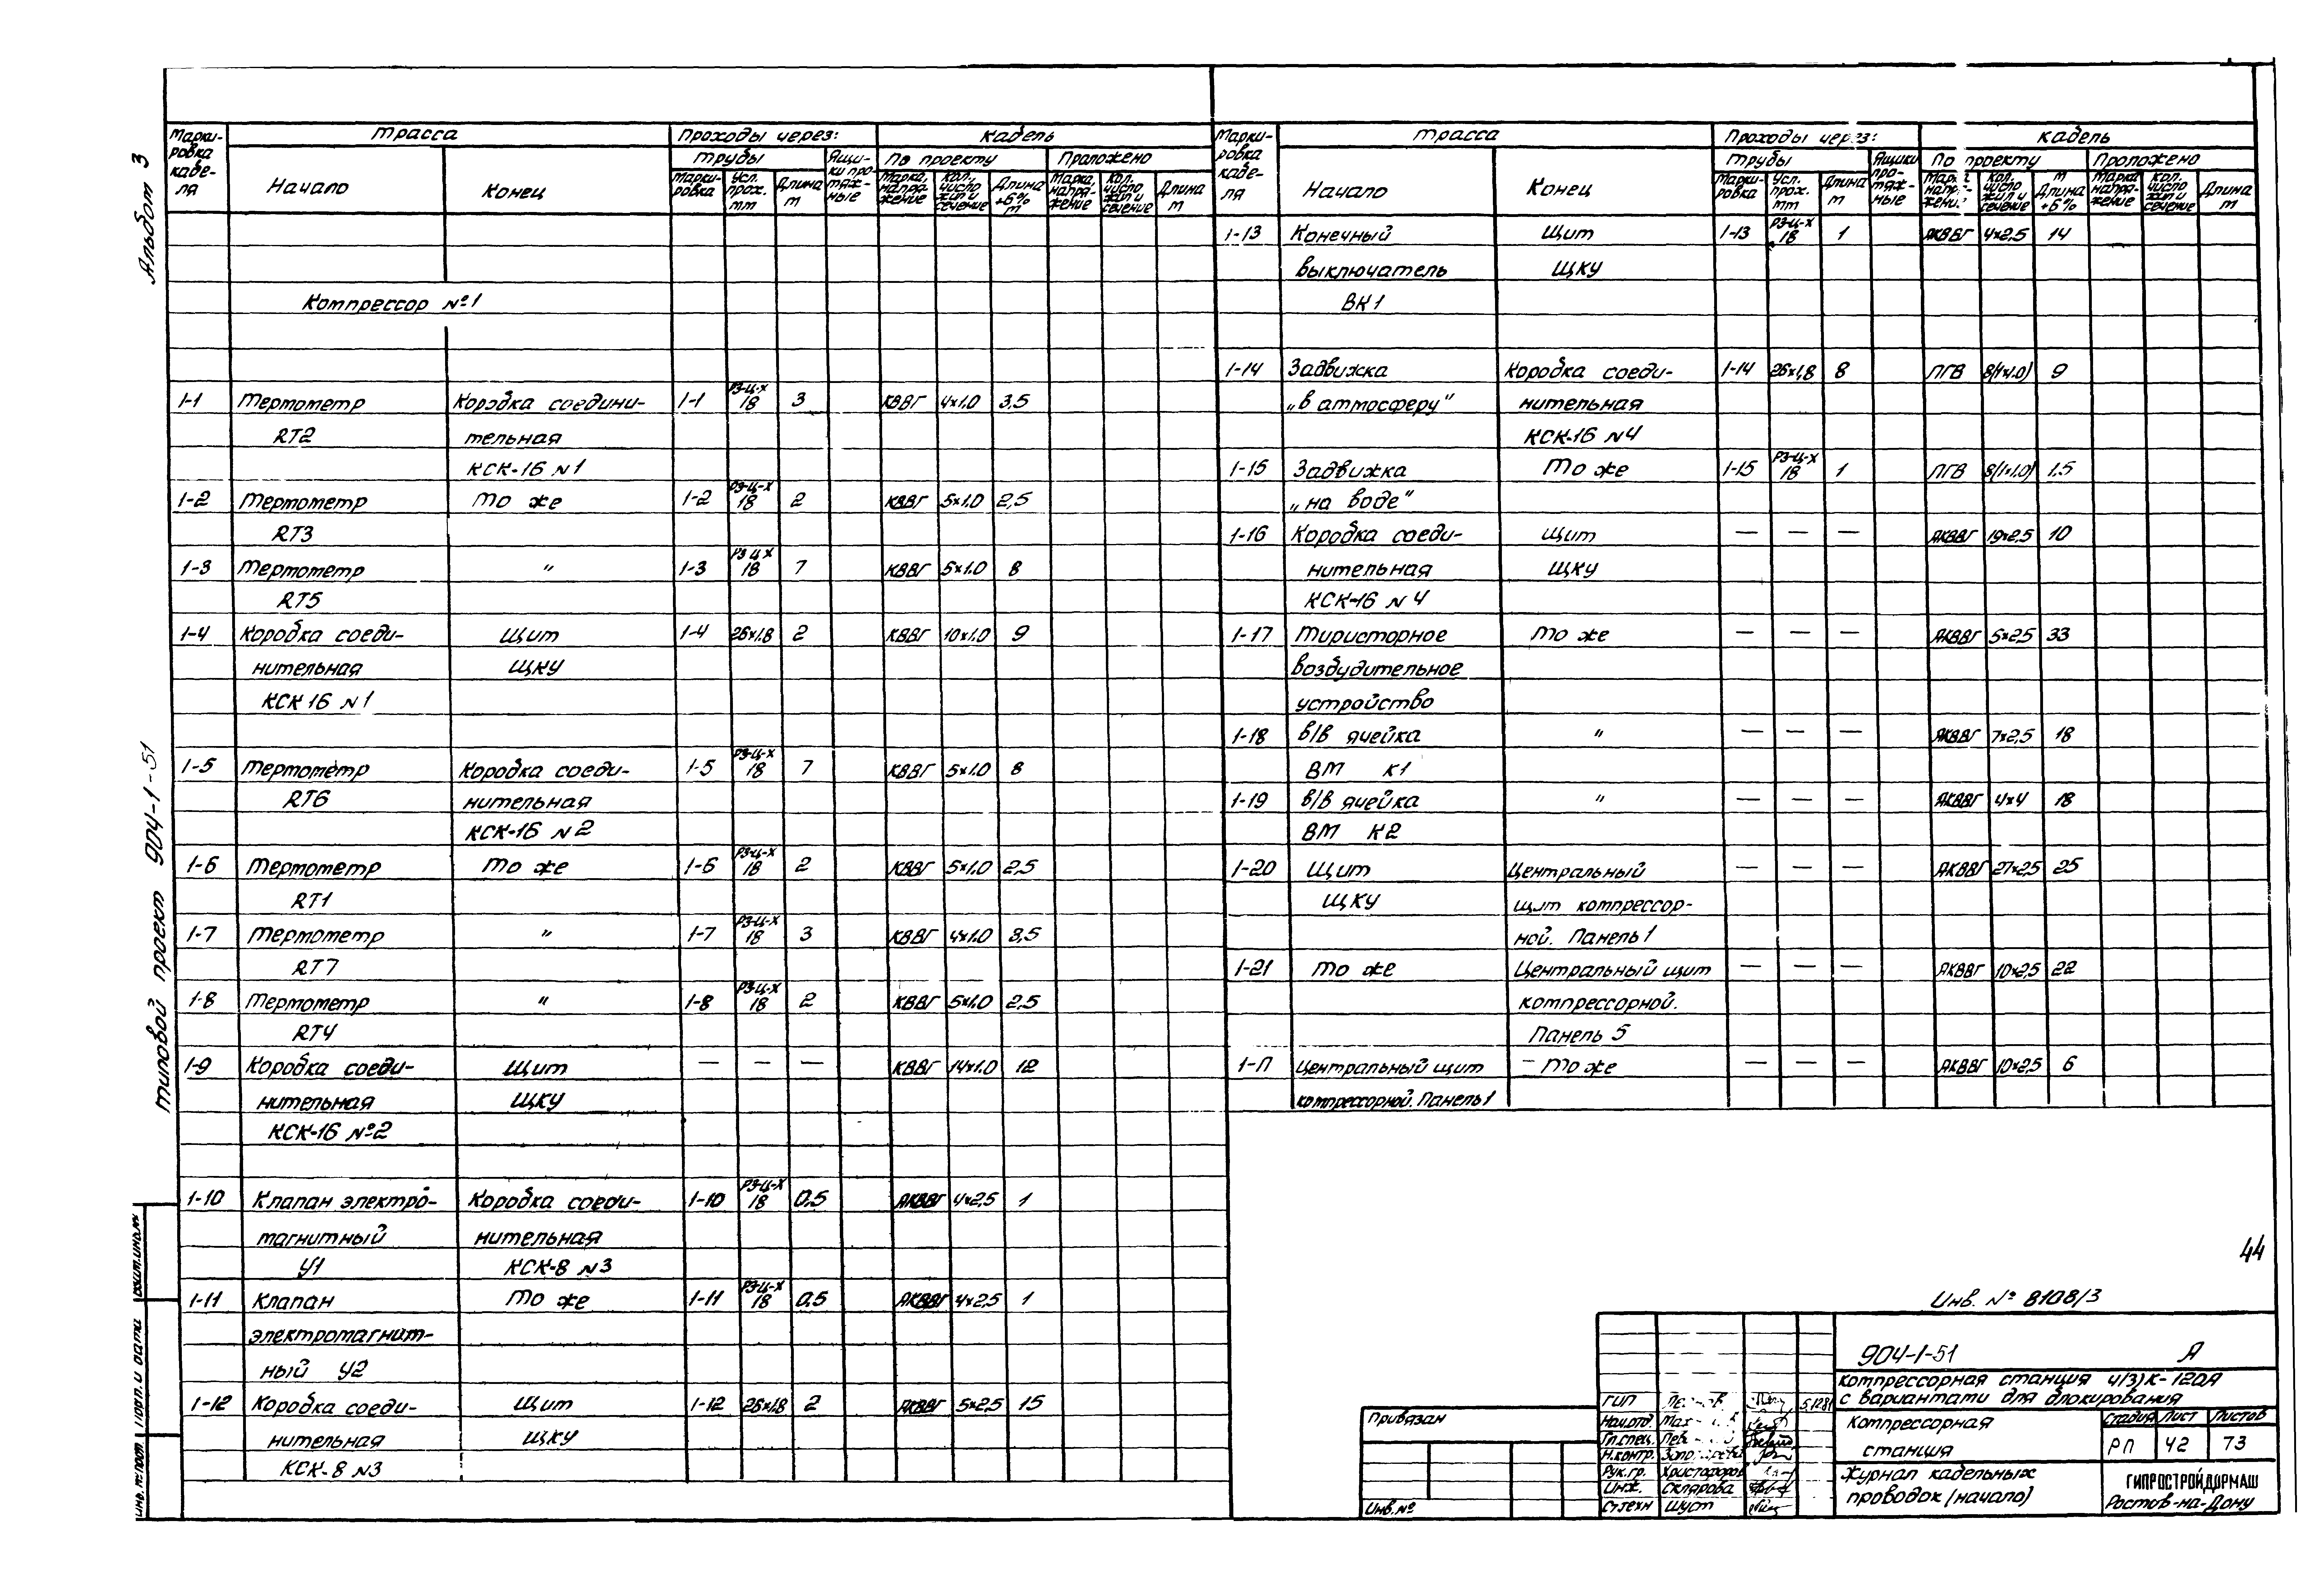 Альбом 3
Типовой проект 904-1-51
Марки-ровка кабе-ля | Трасса | Проходы через: | Кабель
Начало | Конец | трубы | Ящи-ки про-тяж-ные | По проекту | Проложено
Марки-ровка | Усл. прох. мм | Длина м | Марка, напря-жение | Кол., число жил и сечение | Длина +6% м | Марка, напря-жение | Кол. число жил и сечение | Длина м
Компрессор №1
1-1 Термометр Коробка соедини- 1-1 РЗ-Ц-Х 18 3 КВВГ 4х1.0 3,5
RT2 тельная
КСК-16 №1
1-2 Термометр То же 1-2 РЗ-Ц-Х 18 2 КВВГ 5х1.0 2,5
RT3
1-3 Термометр " 1-3 РЗ-Ц-Х 18 7 КВВГ 5х1.0 8
RT5
1-4 Коробка соеди- Щит 1-4 26х1.8 2 КВВГ 10х1.0 9
нительная ЩКУ
КСК 16 №1
1-5 Термометр Коробка соеди- 1-5 РЗ-Ц-Х 18 7 КВВГ 5х1.0 8
RT6 нительная
КСК-16 №2
1-6 Термометр То же 1-6 РЗ-Ц-Х 18 2 КВВГ 5х1.0 2,5
RT1
1-7 Термометр " 1-7 РЗ-Ц-Х 18 3 КВВГ 4х1.0 3,5
RT7
1-8 Термометр " 1-8 РЗ-Ц-Х 18 2 КВВГ 5х1.0 2,5
RT4
1-9 Коробка соеди- Щит — — — КВВГ 14х1.0 12
нительная ЩКУ
КСК-16 №2
1-10 Клапан электро- Коробка соеди- 1-10 РЗ-Ц-Х 18 0,5 АКВВГ 4х2,5 1
магнитный нительная
У1 КСК-8 №3
1-11 Клапан То же 1-11 РЗ-Ц-Х 18 0,5 АКВВГ 4х2,5 1
электромагнит-
ный У2
1-12 Коробка соеди- Щит 1-12 26х1.8 2 АКВВГ 5х2,5 15
нительная ЩКУ
КСК-8 №3
Марки-ровка кабе-ля | Трасса | Проходы через: | Кабель
Начало | Конец | Трубы | Ящики про-тяж-ные | По проекту | Проложено
Марки-ровка | Усл. прох. мм | Длина м | Кол. число жил и сечение | м Длина +6% | Марка напря-жение | Кол. число жил и сечение | Длина м
1-13 Конечный Щит 1-13 РЗ-Ц-Х 18 1 АКВВГ 4х2,5 14
выключатель ЩКУ
ВК1
1-14 Задвижка Коробка соеди- 1-14 26х1,8 8 ПГВ 8(1х1.0) 9
„в атмосферу" нительная
КСК-16 №4
1-15 Задвижка То же 1-15 РЗ-Ц-Х 18 1 ПГВ 8(1х1.0) 1.5
„на воде"
1-16 Коробка соеди- Щит — — — АКВВГ 19х2,5 10
нительная ЩКУ
КСК-16 №4
1-17 Тиристорное То же — — — АКВВГ 5х2,5 33
возбудительное
устройство
1-18 в/в ячейка " — — — АКВВГ 7х2,5 18
ВМ К1
1-19 в/в ячейка " — — — АКВВГ 4х4 18
ВМ К2
1-20 Щит Центральный — — — АКВВГ 27х2,5 25
ЩКУ щит компрессор-
ной. Панель 1
1-21 То же Центральный щит — — — АКВВГ 10х2,5 22
компрессорной.
Панель 5
1-П Центральный щит — То же — — — АКВВГ 10х2,5 6
компрессорной. Панель 1
44
Инв. № 8108/3
904-1-51 А
Компрессорная станция 4(3)К-120А
с вариантами для блокирования
Компрессорная
станция
Стадия Лист Листов
РП 42 73
Журнал кабельных
проводок (начало)
ГИПРОСТРОЙДОРМАШ
Ростов-на-Дону
ГИП
Нач.отд.
Гл.спец.
Н.контр.
Рук.гр. Христофоров
Инж. Склярова
Ст.техн Шуст
Привязан
Инв. №
Взам.инв.№
Подп. и дата
Инв. № подл